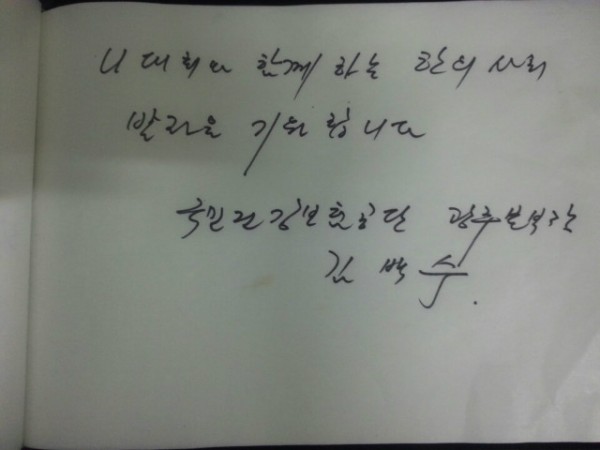 U대회와 함께 하는 한의사회
발전을 기원합니다
국민건강보험공단 광주본부장
김백수.